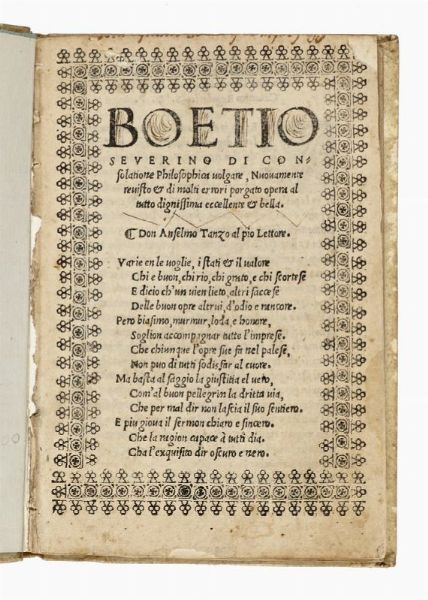 BOETIO
SEVERINO DI CON-
solatione Philosophica uolgare, Nuouamente
reuisto & di molti errori porgato opera al
tutto dignissima eccellente & bella.
Don Anselmo Tanzo al pio Lettore.
Varie en le uoglie, i stati & il ualore
Chi e buon, chi rio, chi grato, e chi scortese
E dicio ch'un uien lieto, altri s'accese
Delle buon opre altrui, d'odio e rancore.
Pero biasimo, murmur, loda, e honore,
Soglion accompagnar tutte l'imprese.
Che chiunque l'opre sue fa nel palese,
Non puo di tutti sodisfar al cuore.
Ma basta al saggio la giustitia el uero,
Com'al buon pellegrin la dritta uia,
Che per mal dir non lascia il suo sentiero.
E piu gioua il sermon chiaro e sincero.
Che la ragion capace à tutti dia.
Cha l'exquisito dir oscuro e nero.